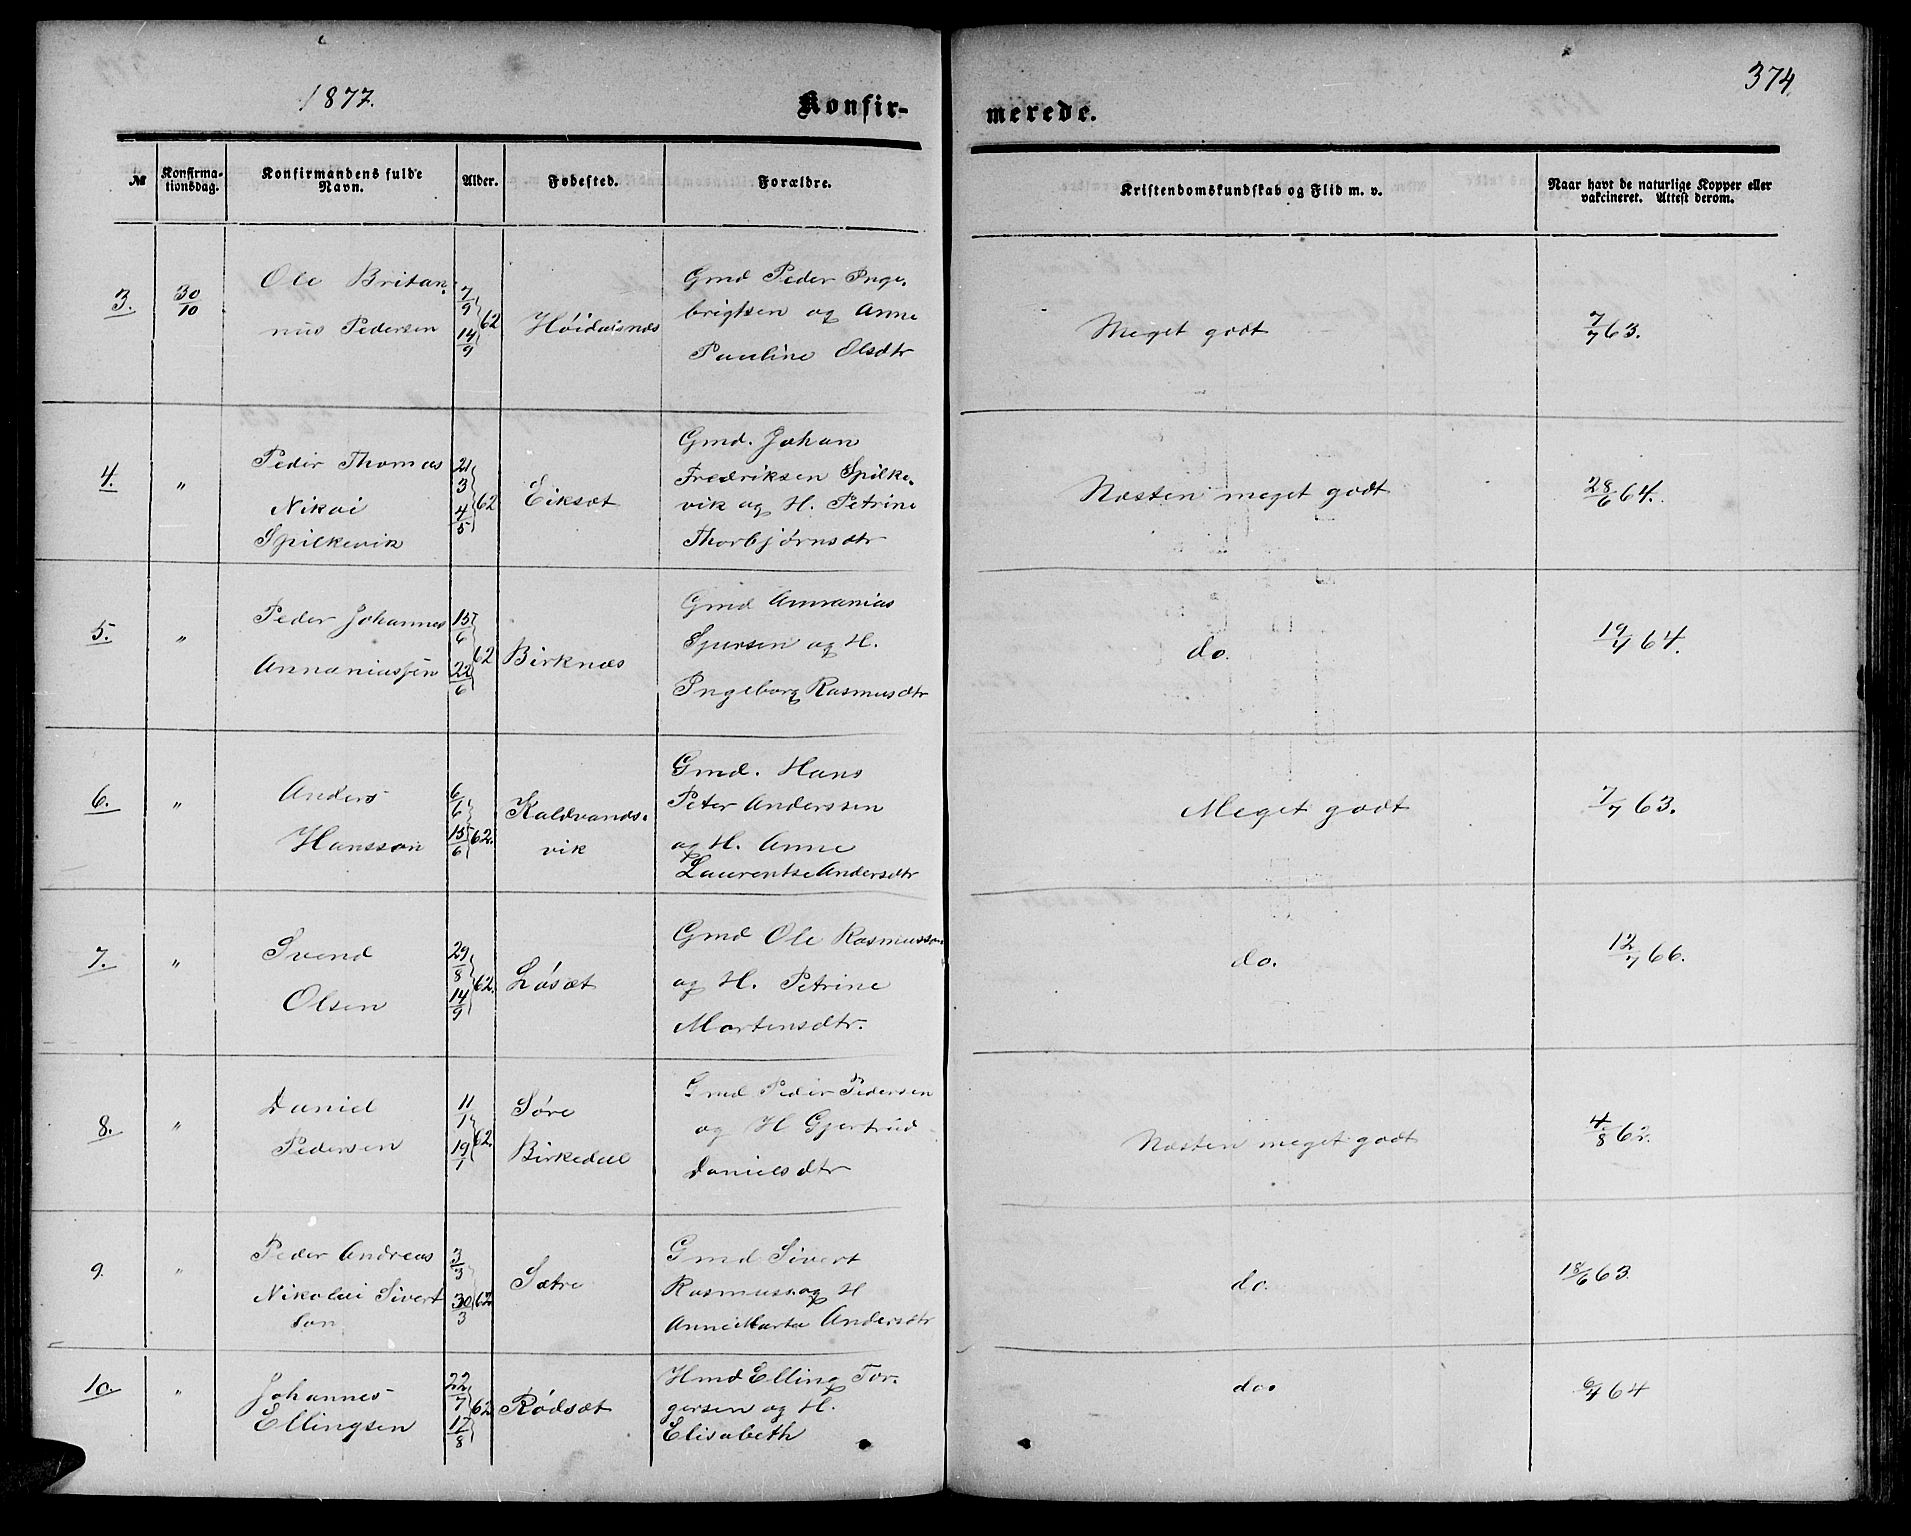 1877.
Konfir-
merede.
374.
№
Konfirma-
tionsdag.
Konfirmandens fulde
Navn.
Alder.
Fødested.
Forældre.
Kristendomskundskab og Flid m. v.
Naar havt de naturlige Kopper eller
vakcineret. Attest derom.
3.
30/10
Ole Britan-
nus Pedersen
7/9 14/9 62
Høidalsnæs
Gmd Peder Inge-
brigtsen og Anne
Pauline Olsdtr
Meget godt
7/7 63.
4.
"
Peder Thomas
Nikai
Spilkevik
21/3 4/5 62
Eiksæt
Gmd. Johan
Fredriksen Spilke-
vik og H. Petrine
Thorbjørnsdtr
Næsten meget godt
28/6 64.
5.
"
Peder Johannes
Annaniassen
15/6 22/6 62
Birknæs
Gmd Annanias
Sjursen og H.
Ingeborg Rasmusdtr
do.
19/4 64.
6.
"
Anders
Hanssøn
6/6 15/6 62.
Kaldvands-
vik
Gmd. Hans
Peter Anderssen
og H. Anne
Laurentse Andersdtr
Meget godt
7/7 63.
7.
"
Svend
Olsen
29/8 14/9 62.
Løsæt
Gmd Ole Rasmussøn
og H. Petrine
Mortensdtr.
do.
12/7 66.
8.
"
Daniel
Pedersen
11/1 19/1 62.
Søre
Birkedal
Gmd Peder Pedersen
og H Gjertrud
Danielsdtr
Næsten meget godt
4/8 62.
9.
"
Peder Andreas
Nikolai Sivert
søn
3/3 30/3 62.
Sætre
Gmd Sivert
Rasmuss. og H
Anne Marta Andersdtr
do.
18/6 63.
10.
"
Johannes
Ellingsen
22/7 17/8 62
Rødsæt
Hmd Elling Tor-
gersen og H.
Elisabeth
do.
6/4 64